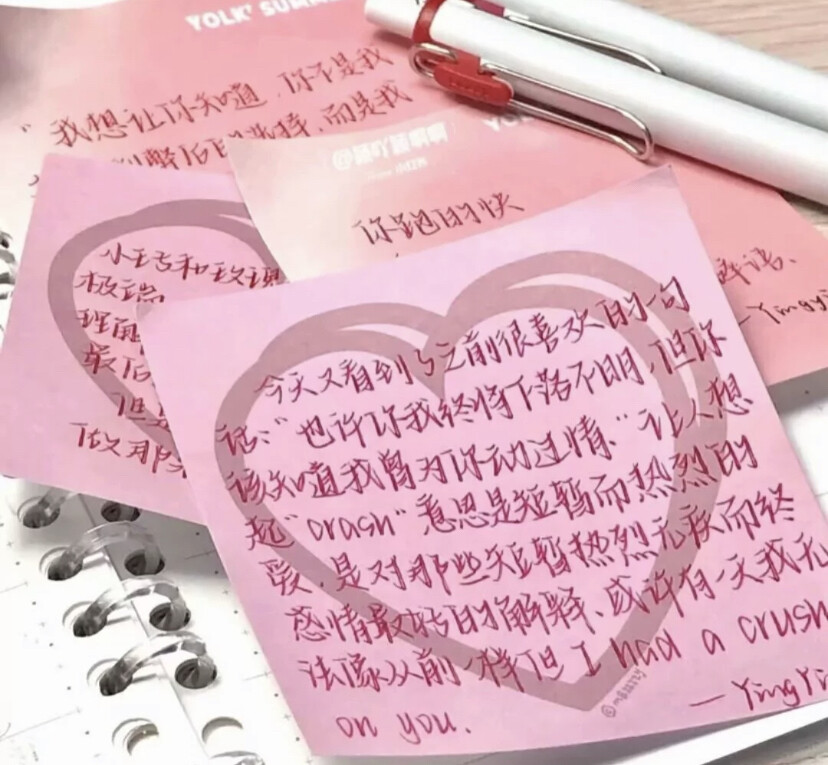 YOLK' SUMM
"我想让你知道,你不是我
后的选择,而是我
YO
你跑的快
—Yingyi
小王子和玫瑰
极端
理
最后
但
做那
今天又看到了之前很喜欢的一句
话:"也许你我终将下落不明,但你
该知道我曾对你动过情。"让人想
起"crash"意思是短暂而热烈的
爱,是对那些短暂热烈无疾而终
感情最好的解释、或许有一天我无
法像从前一样但 I had a crush
on you.
—YingYi